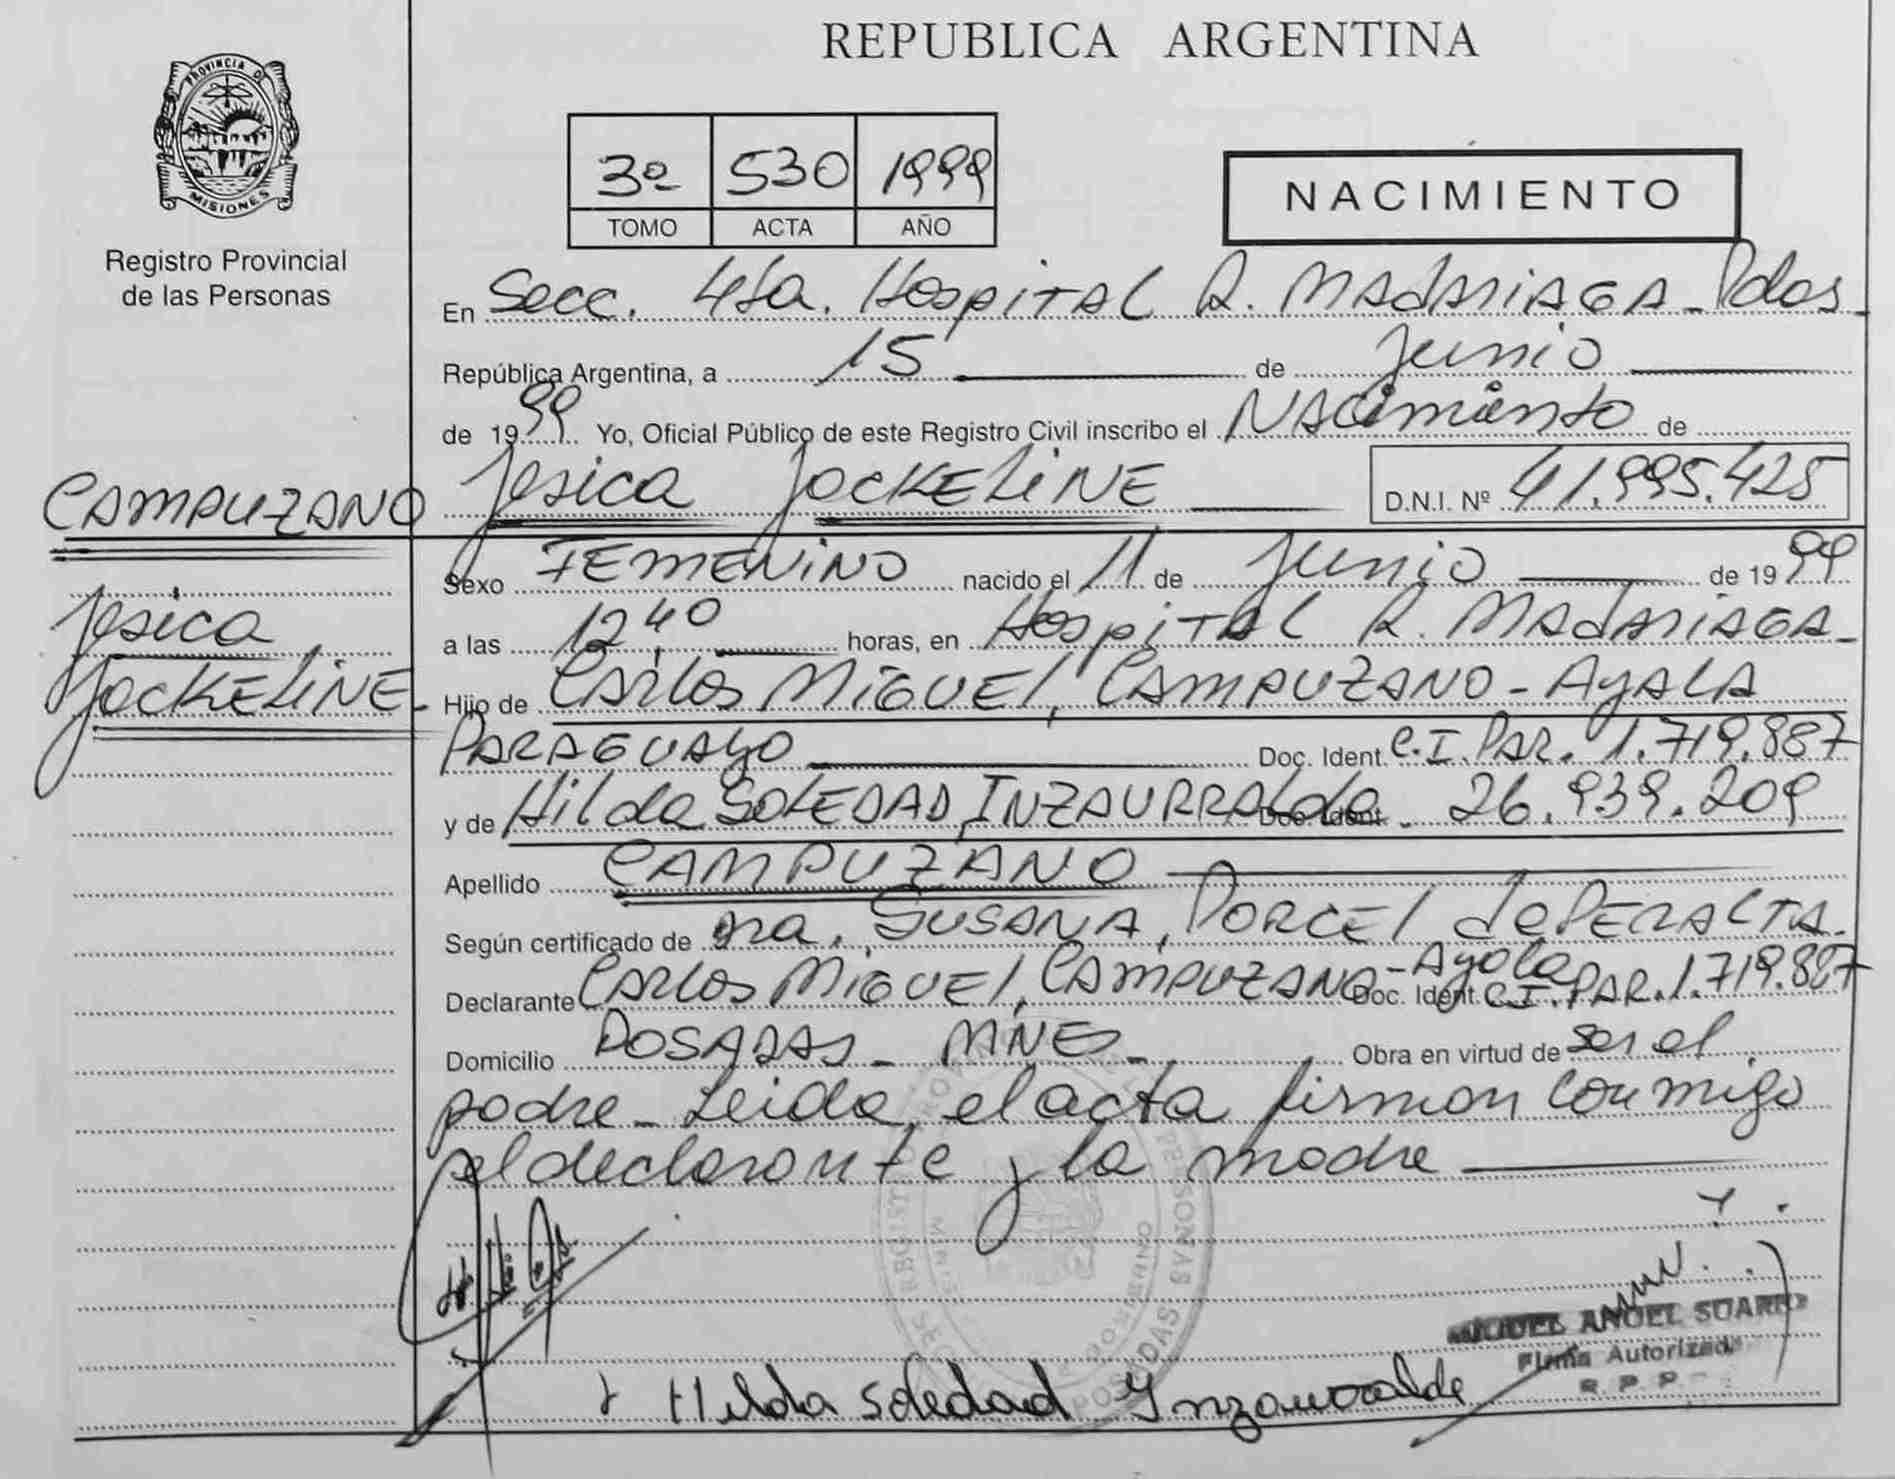 REPUBLICA ARGENTINA
PROVINCIA DE
MISIONES
Registro Provincial
de las Personas
3º 530 1999
TOMO ACTA AÑO
NACIMIENTO
En Secc. 4ta. Hospital R. MAdARiAGA - Pdas -
República Argentina, a 15 de Junio
de 1999 Yo, Oficial Público de este Registro Civil inscribo el NAcimiento de
Jesica JOCKELiNE D.N.I. Nº 41.995.425
CAMPUZANO
Jesica
JOCKELiNE -
Sexo FEMENiNO nacido el 11 de Junio de 1999
a las 12,40 horas, en Hospital R. MAdARiAGA -
Hijo de CARlos MiGUEl, CAMPUZANO - AyALA
PARAGUAyO Doc. Ident. C.I. PAR. 1.719.887
y de Hilda SOLEDAD, INZAURRAlde Doc. Ident. 26.939.209
Apellido CAMPUZANO
Según certificado de dra. SUSANA, DORCEl de PERALTA -
Declarante CARlos MiGUEl, CAMPUZANO - Ayala Doc. Ident. C.I. PAR. 1.719.887
Domicilio POSADAS - MNES - Obra en virtud de ser el
padre - Leida el acta firman conmigo
el declarante y la madre
MIGUEL ANGEL SUAREZ
Firma Autorizada
R. P. P.
Hilda Soledad Ynzaurralde